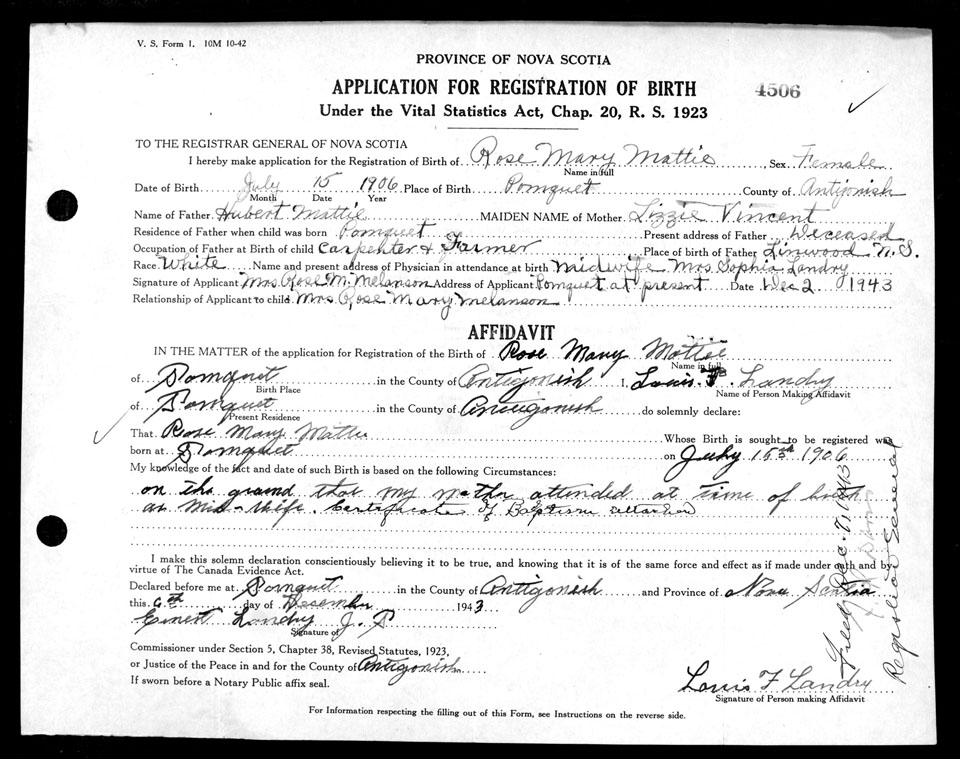 V. S. Form 1. 10M 10-42
PROVINCE OF NOVA SCOTIA
APPLICATION FOR REGISTRATION OF BIRTH
4506
Under the Vital Statistics Act, Chap. 20, R. S. 1923
TO THE REGISTRAR GENERAL OF NOVA SCOTIA
I hereby make application for the Registration of Birth of Rose Mary Mattie, Sex Female
Name in full
Date of Birth July 15 1906 Place of Birth Pomquet County of Antigonish
Month Date Year
Name of Father Hubert Mattie MAIDEN NAME of Mother Lizzie Vincent
Residence of Father when child was born Pomquet Present address of Father Deceased
Occupation of Father at Birth of child Carpenter & Farmer Place of birth of Father Linwood N.S.
Race White Name and present address of Physician in attendance at birth midwife Mrs Sophia Landry
Signature of Applicant Mrs Rose M. Melanson Address of Applicant Pomquet at present Date Dec 2 1943
Relationship of Applicant to child Mrs Rose Mary Melanson
AFFIDAVIT
IN THE MATTER of the application for Registration of the Birth of Rose Mary Mattie
Name in full
of Pomquet in the County of Antigonish I, Louis F. Landry
Birth Place Name of Person Making Affidavit
of Pomquet in the County of Antigonish do solemnly declare:
Present Residence
That Rose Mary Mattie Whose Birth is sought to be registered was
born at Pomquet on July 15th 1906
My knowledge of the fact and date of such Birth is based on the following Circumstances:
on the ground that my mother attended at time of birth
as Mid-Wife. Certificate of Baptism attached
I make this solemn declaration conscientiously believing it to be true, and knowing that it is of the same force and effect as if made under oath and by
virtue of The Canada Evidence Act.
Declared before me at Pomquet in the County of Antigonish and Province of Nova Scotia
this 6th day of December 1943
Ernest Landry J. P
Signature of
Commissioner under Section 5, Chapter 38, Revised Statutes, 1923,
or Justice of the Peace in and for the County of Antigonish
If sworn before a Notary Public affix seal.
Louis F Landry
Signature of Person making Affidavit
For Information respecting the filling out of this Form, see Instructions on the reverse side.
Filed Dec. 1943
Registrar General